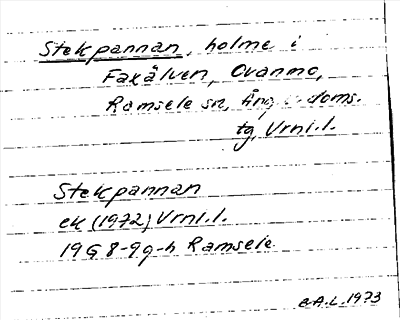 Stekpannan, holme i
Faxälven, Ovanmo,
Ramsele sn, Ång doms.
tg, Vrnl.l.
Stekpannan
ek (1972) Vrnl.l.
19G 8-9g-h Ramsele
A.L. 1973